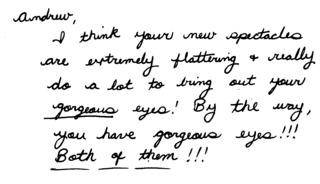 Andrew,
I think your new spectacles
are extremely flattering & really
do a lot to bring out your
gorgeous eyes! By the way,
you have gorgeous eyes!!!
Both of them!!!